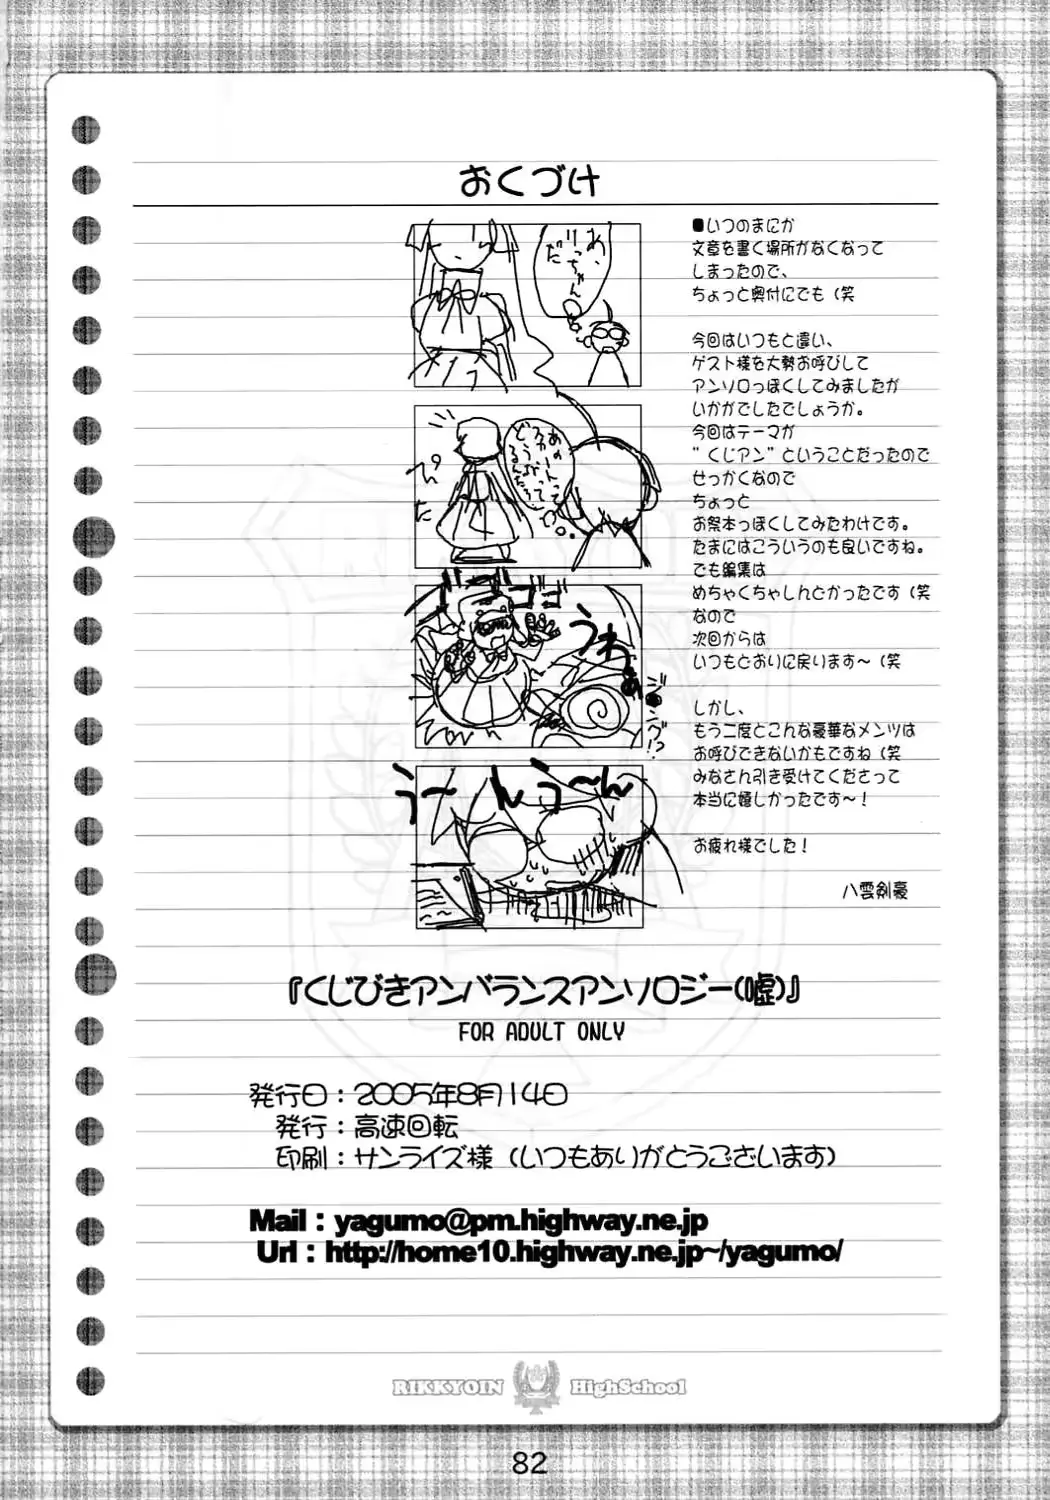 おくづけ
■いつのまにか
文章を書く場所がなくなって
しまったので、
ちょっと奥付にでも（笑
今回はいつもと違い、
ゲスト様を大勢お呼びして
アンソロっぽくしてみましたが
いかがでしたでしょうか。
今回はテーマが
"くじアン"ということだったので
せっかくなので
ちょっと
お祭本っぽくしてみたわけです。
たまにはこういうのも良いですね。
でも編集は
めちゃくちゃしんどかったです（笑
なので
次回からは
いつもどおりに戻ります～（笑
しかし、
もう二度とこんな豪華なメンツは
お呼びできないかもですね（笑
みなさん引き受けてくださって
本当に嬉しかったです～！
お疲れ様でした！
八雲剣豪
あ、
りっちゃん
だ
ぴた
ゴゴゴゴ
うわぁぁ
う～んう～ん
『くじびきアンバランスアンソロジー(嘘)』
FOR ADULT ONLY
発行日：2005年8月14日
発行：高速回転
印刷：サンライズ様（いつもありがとうございます）
Mail：yagumo@pm.highway.ne.jp
Url：http://home10.highway.ne.jp~/yagumo/
RIKKYOIN HighSchool
82